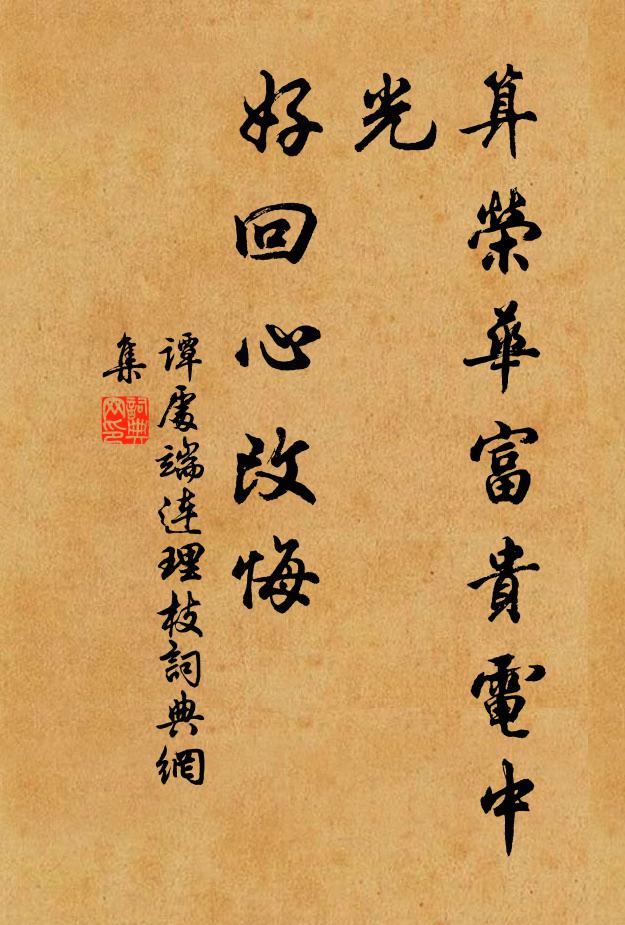 算榮華富貴電中
光
好回心改悔
谭處端連理枝詞典網
集
詞典
网印